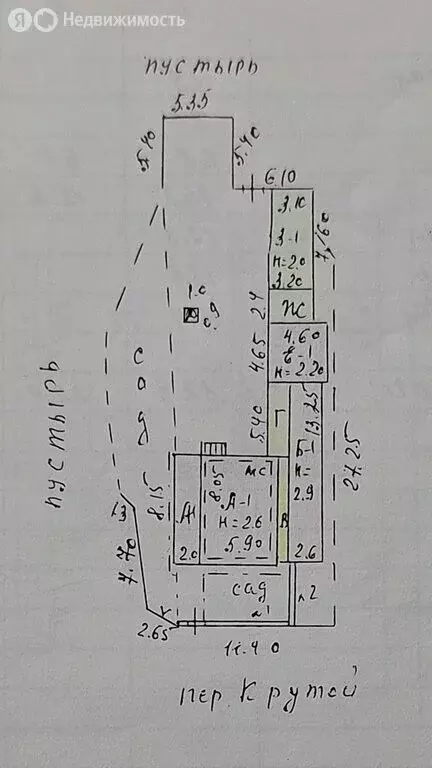 Я Недвижимость
пустырь
5.35
5.40
5.40
6.10
3.10
З-1
н=2.0
3.20
7.60
1.0
0.9
2.4
ПС
4.65
4.60
Е-1
н=2.20
сад
пустырь
5.40
Г
13.25
Б-1
н=
2.9
27.25
8.15
8.05
мс
А-1
н=2.6
5.90
А1
2.0
В
2.6
13
7.70
сад
2.65
11.40
пер. Крутой